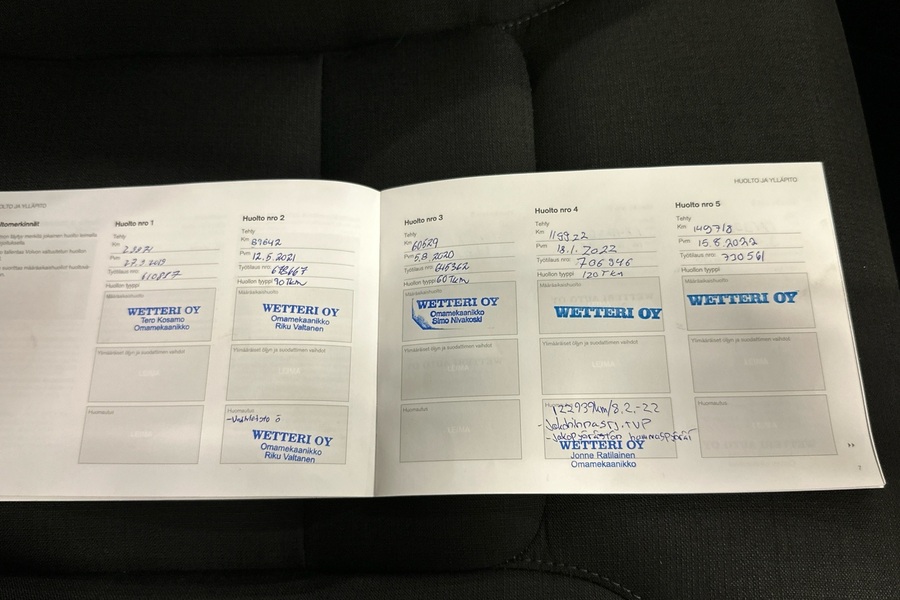 HUOLTO JA YLLÄPITO
Huolto nro 1
Tehty
Km
Pvm 27.9.2019
Työtilaus nro:
Huollon tyyppi
Määräaikaishuolto
WETTERI OY
Tero Kosamo
Omamekaanikko
Ylimääräiset öljyn ja suodattimen vaihdot
LEIMA
Huomautus
LEIMA
Huolto nro 2
Tehty
Km 89642
Pvm 12.5.2021
Työtilaus nro:
Huollon tyyppi 90Tkm
WETTERI OY
Omamekaanikko
Riku Valtanen
Ylimääräiset öljyn ja suodattimen vaihdot
LEIMA
Huomautus
WETTERI OY
Omamekaanikko
Riku Valtanen
Huolto nro 3
Tehty
Km 60529
Pvm 5.8.2020
Työtilaus nro: 645362
Huollon tyyppi 60Tkm
Määräaikaishuolto
WETTERI OY
Omamekaanikko
Simo Nivakoski
Ylimääräiset öljyn ja suodattimen vaihdot
LEIMA
Huomautus
LEIMA
HUOLTO JA YLLÄPITO
Huolto nro 4
Tehty
Km 119922
Pvm 18.1.2022
Työtilaus nro: 706946
Huollon tyyppi 120Tkm
WETTERI OY
Ylimääräiset öljyn ja suodattimen vaihdot
LEIMA
122939km/8.2.-22
-Jakohihnasrj.+VP
-Jakopyörästön hammaspyörät
WETTERI OY
Jonne Ratilainen
Omamekaanikko
Huolto nro 5
Tehty
Km 149718
Pvm 15.8.2022
Työtilaus nro: 730561
Huollon tyyppi
Määräaikaishuolto
WETTERI OY
Ylimääräiset öljyn ja suodattimen vaihdot
Huomautus
7